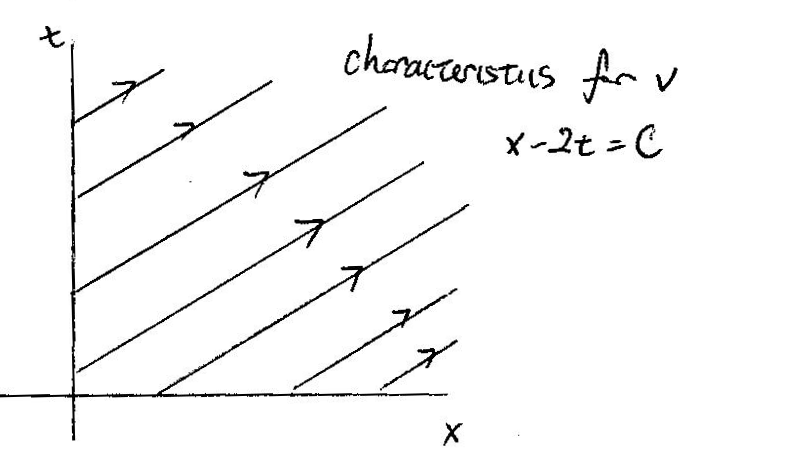 t
characteristics for v
x-2t=C
x